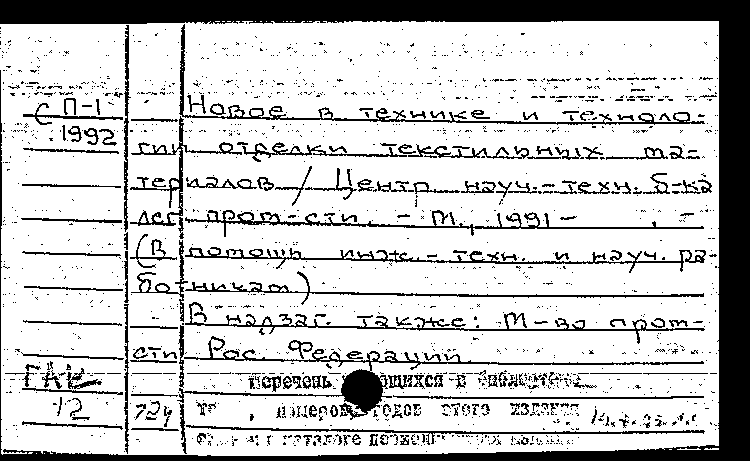 С П-1
1992
Новое в технике и техноло-
гии отделки текстильных ма-
териалов / Центр науч.-техн. б-ка
лег. пром-сти. - М., 1991 - . -
(В помощь инж.-техн. и науч. ра-
ботникам)
В надзаг. также: М-во пром-
сти Рос. Федерации.
перечень щихся в библиотеке
12 724 номеров годов этого издания
каталоге